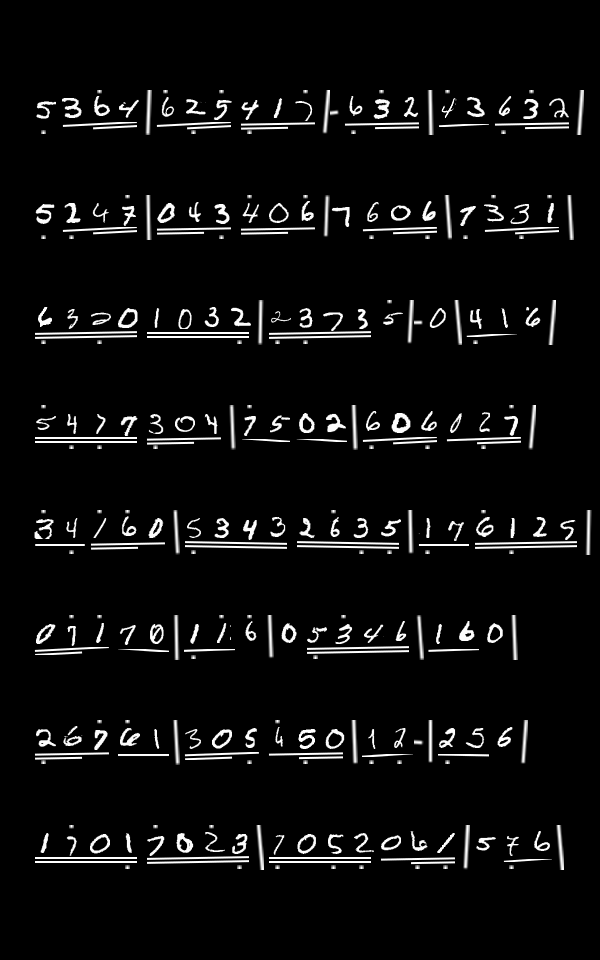 5364|625417|-632|43632
5247|043406|7606|7331
63201032|2373 5|-0|416
5477304|7502|606027
34760|53432635|176125
07170|116|05346|160
26761|305450|12-|256
17017023|7052061|576